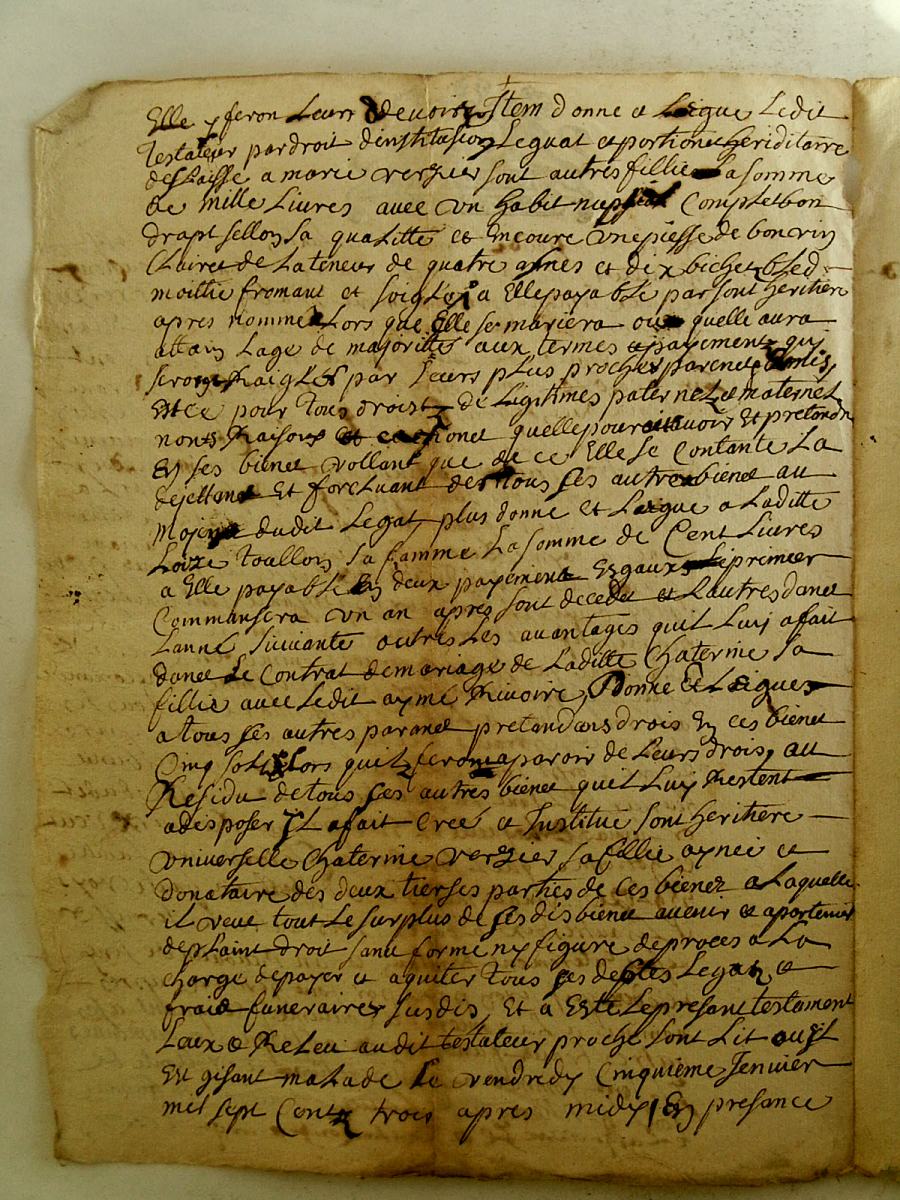 Elle y feron Leurs devoirs, Item donne et Leigue Ledit
Testateur par droit dinstitution Leguat et portion heriditaire
delaisse a marie verzier sont autres fillie La somme
de mille Livres avec un habit nupsial Complet bon
drapt sellon sa qualitte et Encoure une piesse de bon vin
Clairet de La teneur de quatre asnes et dix bichet bled
moittie fromant et soigle a Elle payable par sont heritiere
apres nommé Lors que Elle se mariera ou quelle aura
attain Lage de majoritté aux termes payement quj
seron Raigles par Leurs plus proches parenet amis,
Et ce pour Tous droist de Legitimes paternel et maternel
noms Raisons et actionet quelle pouroit avoir Et pretendre
En ses bienet vollant que de ce Elle se Contante La
dejettant Et forcluant de tous ses autres bienet au
moyen dudit Legat, plus donne et Laigue a Laditte
Loize Toullon sa famme La somme de Cent Livres
a Elle payable En deux payement Esgaux Le premier
Commansera un an apres sont decedet et Lautres danet
Lanné suivante outres Les avantages quil Luij a fait
danet Le Contrat de mariage de Laditte Chaterine sa
fillie avec Ledit aymé Rivoire, Donne et Leigues
a tous ses autres paranet pretandans drois En ces bienet
Cinq sols Lors quilz feron aparoir de Leurs drois, au
Residu de tous ses autres bienet quil Luy Restent
a disposer Il a fait Creé et Institué sont heritiere
universelle Chaterine verzier sa fillie aynée et
donataire des deux tierses parties de ces bienez a Laquelle
il veut tout Le surplus de ses dis bienet avenir et apartenir
de plaint droit sans forme ny figure de proces a La
charge de payer et aquiter Tous ses debtes Legatz et
frais funeraires susdis, Et a Esté Le presant testament
Leux et ReLeu audit testateur proche sont Lit ou Il
Est gisant malade Le vendredy Cinquieme Jenvier
mil sept Centz trois apres midy En presance